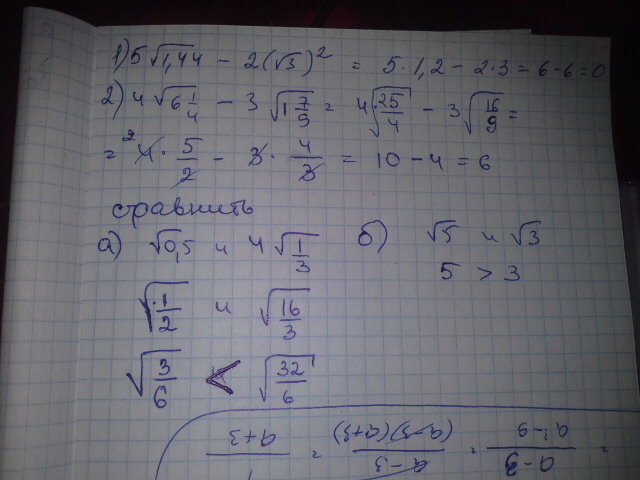 1) 5√1,44 - 2(√3)² = 5·1,2 - 2·3 = 6-6=0
2) 4√6 1/4 - 3√1 7/9 = 4√25/4 - 3√16/9 =
= ²4 · 5/2 - 3 · 4/3 = 10 - 4 = 6
сравнить
а) √0,5 и 4√1/3 б) √5 и √3
√1/2 и √16/3 5 > 3
√3/6 < √32/6
a-3/a²-9 = a-3/(a-3)(a+3) = 1/a+3